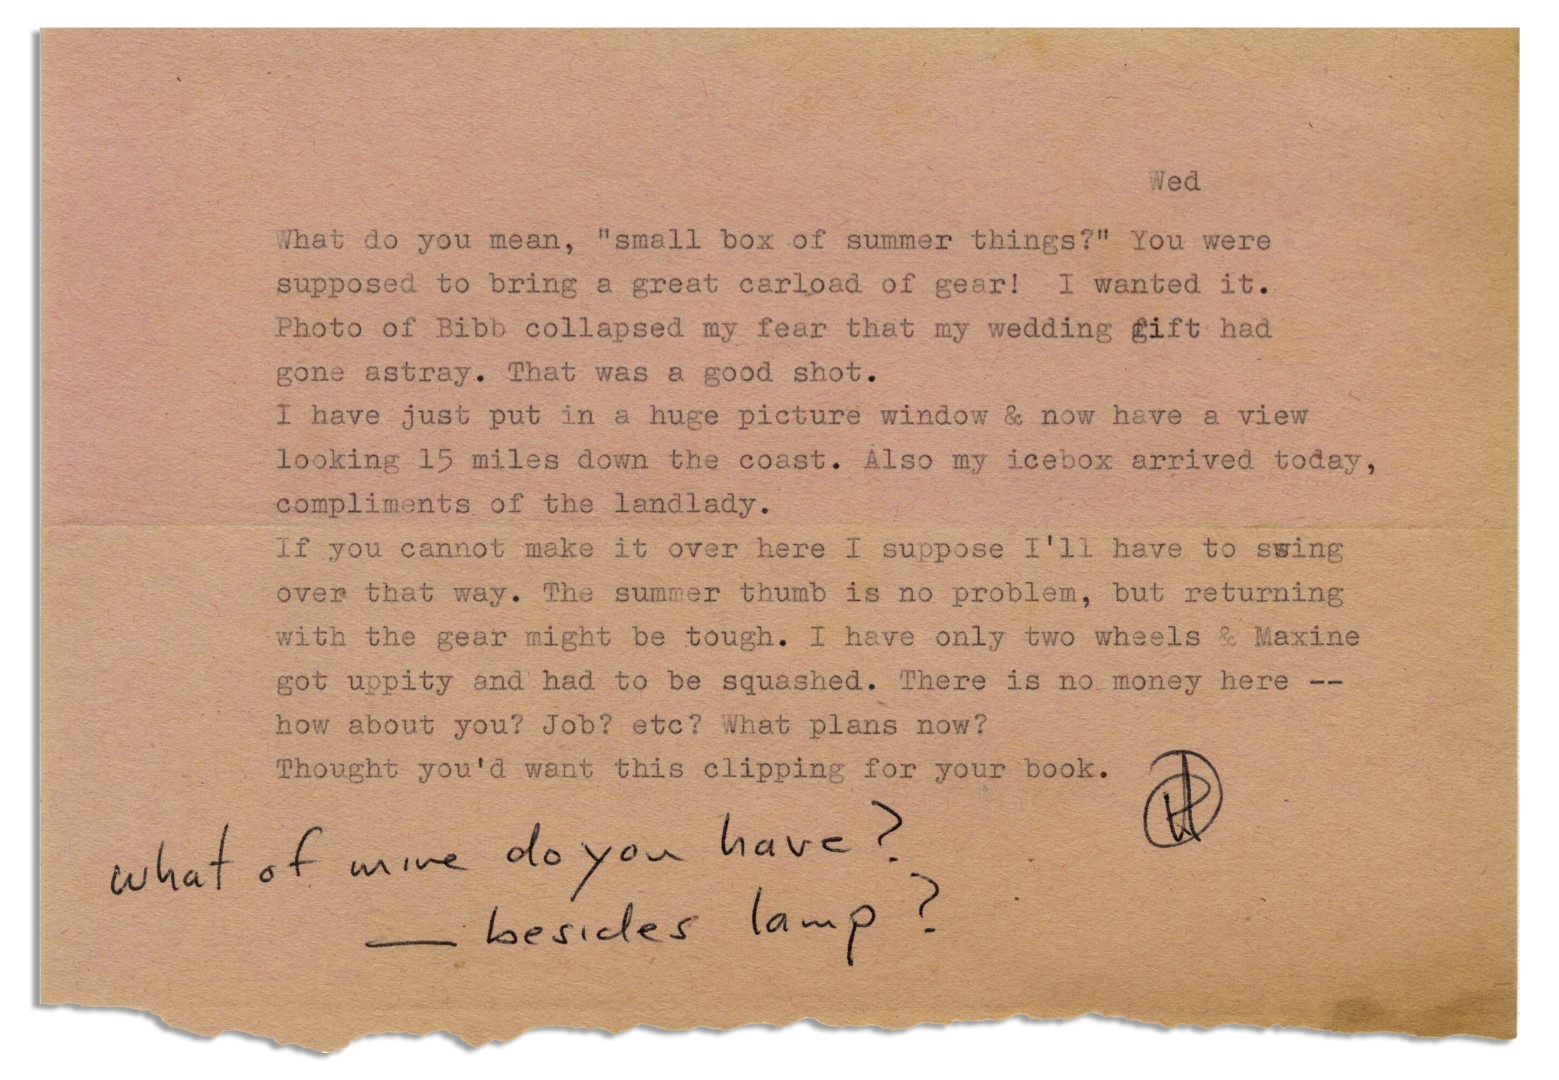 Wed
What do you mean, "small box of summer things?" You were
supposed to bring a great carload of gear!  I wanted it.
Photo of Bibb collapsed my fear that my wedding gift had
gone astray. That was a good shot.
I have just put in a huge picture window & now have a view
looking 15 miles down the coast. Also my icebox arrived today,
compliments of the landlady.
If you cannot make it over here I suppose I'll have to swing
over that way. The summer thumb is no problem, but returning
with the gear might be tough. I have only two wheels & Maxine
got uppity and had to be squashed. There is no money here --
how about you? Job? etc? What plans now?
Thought you'd want this clipping for your book.
what of mine do you have?
— besides lamp?